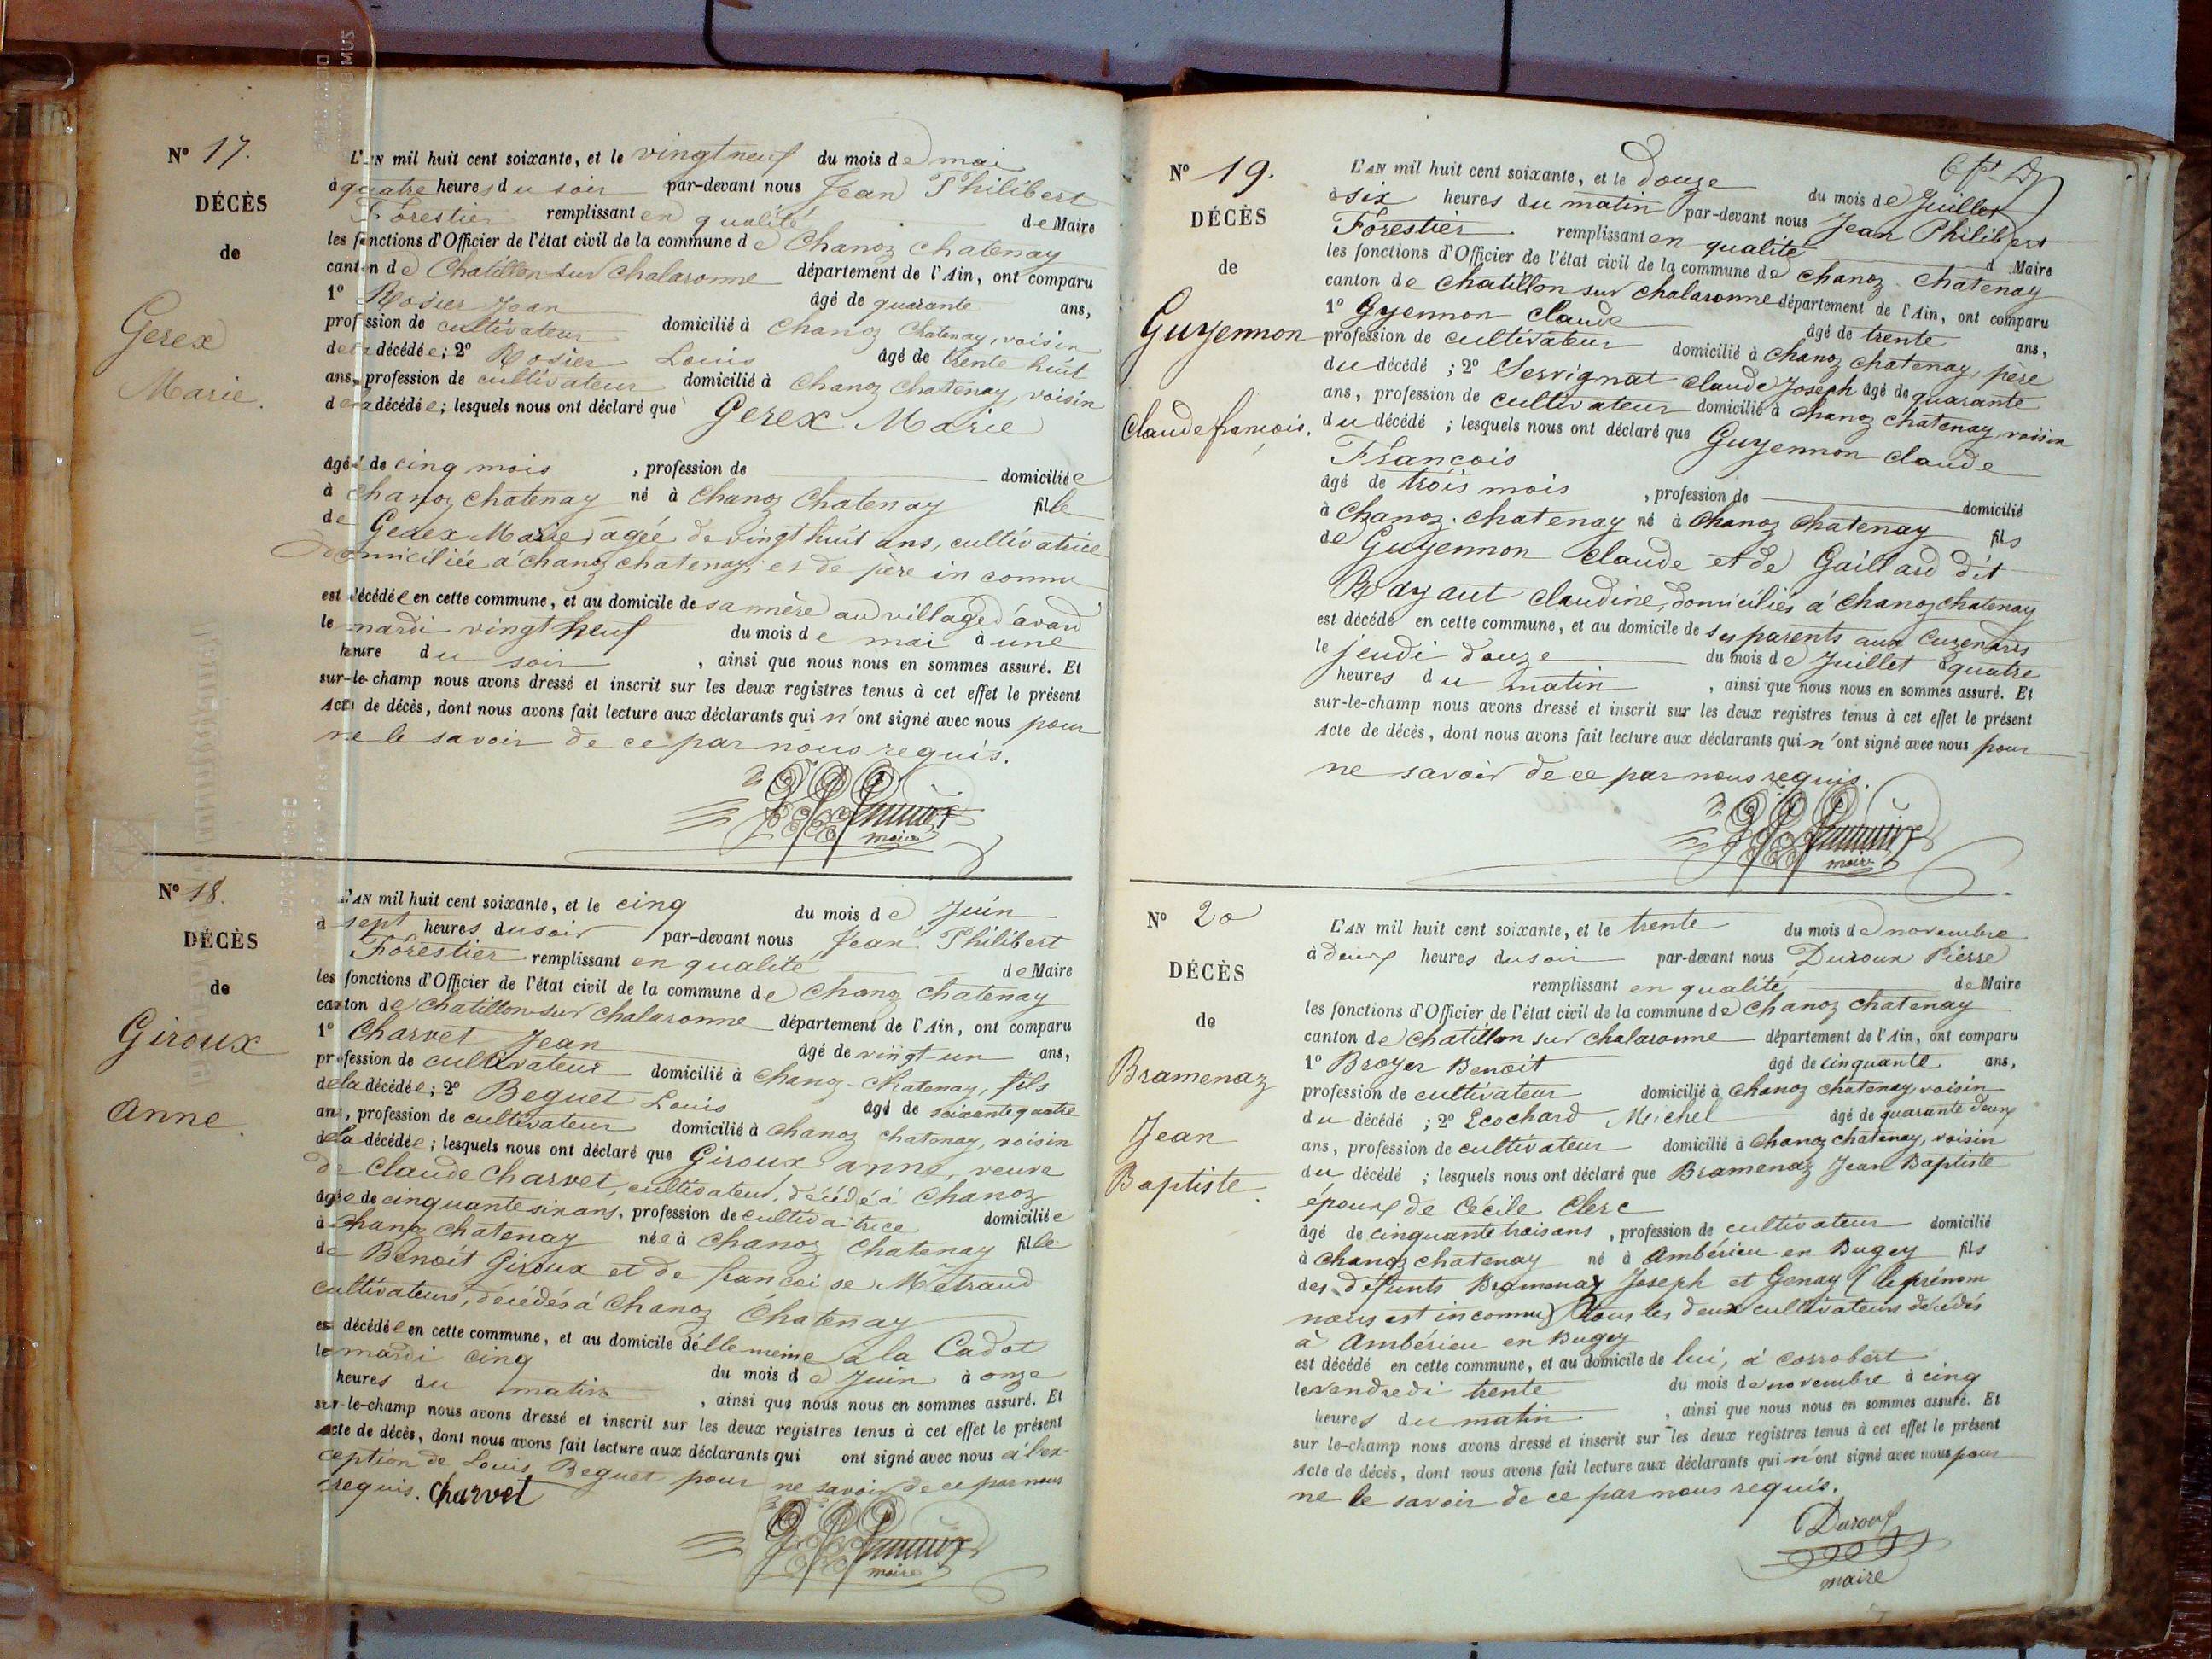 N° 17.
DÉCÈS
de
Gerex
Marie.
L'AN mil huit cent soixante, et le vingt neuf du mois de mai
à quatre heures du soir par-devant nous Jean Philibert
Forestier remplissant en qualité de Maire
les fonctions d'Officier de l'état civil de la commune de Chanoz chatenay
canton de Chatillon sur chalaronne département de l'Ain, ont comparu
1° Rosier Jean âgé de quarante ans,
profession de cultivateur domicilié à Chanoz Chatenay, voisin
de la décédée; 2° Rosier Louis âgé de trente huit
ans, profession de cultivateur domicilié à Chanoz Chatenay, voisin
de la décédée; lesquels nous ont déclaré que Gerex Marie
âgée de cinq mois, profession de domiciliée
à chanoz chatenay né à Chanoz Chatenay fille
de Gerex Marie, âgée de vingt huit ans, cultivatrice
domiciliée à chanoz chatenay, et de père inconnu
est décédée en cette commune, et au domicile de sa mère au village d'avard
le mardi vingt neuf du mois de mai à une
heure du soir, ainsi que nous nous en sommes assuré. Et
sur-le-champ nous avons dressé et inscrit sur les deux registres tenus à cet effet le présent
Acte de décès, dont nous avons fait lecture aux déclarants qui n'ont signé avec nous pour
ne le savoir de ce par nous requis.
maire
N° 18.
DÉCÈS
de
Giroux
Anne.
L'AN mil huit cent soixante, et le cinq du mois de Juin
à sept heures du soir par-devant nous Jean Philibert
Forestier remplissant en qualité de Maire
les fonctions d'Officier de l'état civil de la commune de Chanoz Chatenay
canton de chatillon sur Chalaronne département de l'Ain, ont comparu
1° Charvet Jean âgé de vingt-un ans,
profession de cultivateur domicilié à Chanoz-Chatenay, fils
de la décédée; 2° Beguet Louis âgé de soixante quatre
ans, profession de cultivateur domicilié à Chanoz chatenay, voisin
de la décédée; lesquels nous ont déclaré que Giroux anne, veuve
de Claude Charvet, cultivateur, décédé à Chanoz
âgée de cinquante six ans, profession de cultivatrice domiciliée
à Chanoz chatenay née à Chanoz Chatenay fille
de Benoit Giroux et de francoise Metraud
cultivateurs, décédés à Chanoz Chatenay
est décédée en cette commune, et au domicile d'elle meme à la Cadot
le mardi cinq du mois de Juin à onze
heures du matin, ainsi que nous nous en sommes assuré. Et
sur-le-champ nous avons dressé et inscrit sur les deux registres tenus à cet effet le présent
Acte de décès, dont nous avons fait lecture aux déclarants qui ont signé avec nous à l'ex-
ception de Louis Beguet pour ne savoir de ce par nous
requis. Charvet
maire
N° 19.
DÉCÈS
de
Guyennon
Claude françois.
L'AN mil huit cent soixante, et le douze du mois de Juillet
à six heures du matin par-devant nous Jean Philibert
Forestier remplissant en qualité d Maire
les fonctions d'Officier de l'état civil de la commune de Chanoz Chatenay
canton de Chatillon sur chalaronne département de l'Ain, ont comparu
1° Gyennon Claude âgé de trente ans,
profession de cultivateur domicilié à Chanoz chatenay, père
du décédé; 2° Servignat Claude Joseph âgé de quarante
ans, profession de cultivateur domicilié à Chanoz chatenay voisin
du décédé; lesquels nous ont déclaré que Guyennon claude
Francois
âgé de trois mois, profession de domicilié
à Chanoz chatenay né à Chanoz Chatenay fils
de Guyennon Claude et de Gaillard dit
Rayaut claudine, domiciliés à chanoz chatenay
est décédé en cette commune, et au domicile de ses parents aux
le jeudi douze du mois de Juillet à quatre
heures du matin, ainsi que nous nous en sommes assuré. Et
sur-le-champ nous avons dressé et inscrit sur les deux registres tenus à cet effet le présent
Acte de décès, dont nous avons fait lecture aux déclarants qui n'ont signé avec nous pour
ne savoir de ce par nous requis.
maire
N° 20
DÉCÈS
de
Bramenaz
Jean
Baptiste.
L'AN mil huit cent soixante, et le trente du mois de novembre
à deux heures du soir par-devant nous Duroux Pierre
remplissant en qualité de Maire
les fonctions d'Officier de l'état civil de la commune de Chanoz chatenay
canton de chatillon sur chalaronne département de l'Ain, ont comparu
1° Broyer Benoit âgé de cinquante ans,
profession de cultivateur domicilié à Chanoz chatenay, voisin
du décédé; 2° Ecochard Michel âgé de quarante deux
ans, profession de cultivateur domicilié à Chanoz chatenay, voisin
du décédé; lesquels nous ont déclaré que Bramenaz Jean Baptiste
époux de Cécile Clerc
âgé de cinquante trois ans, profession de cultivateur domicilié
à chanoz chatenay né à Ambérieu en Bugey fils
des défunts Bramenaz Joseph et Genay (le prénom
nous est inconnu) tous les deux cultivateurs décédés
à Ambérieu en Bugey
est décédé en cette commune, et au domicile de lui, à corrobert
le vendredi trente du mois de novembre à cinq
heures du matin, ainsi que nous nous en sommes assuré. Et
sur le-champ nous avons dressé et inscrit sur les deux registres tenus à cet effet le présent
Acte de décès, dont nous avons fait lecture aux déclarants qui n'ont signé avec nous pour
ne le savoir de ce par nous requis.
Duroux
maire